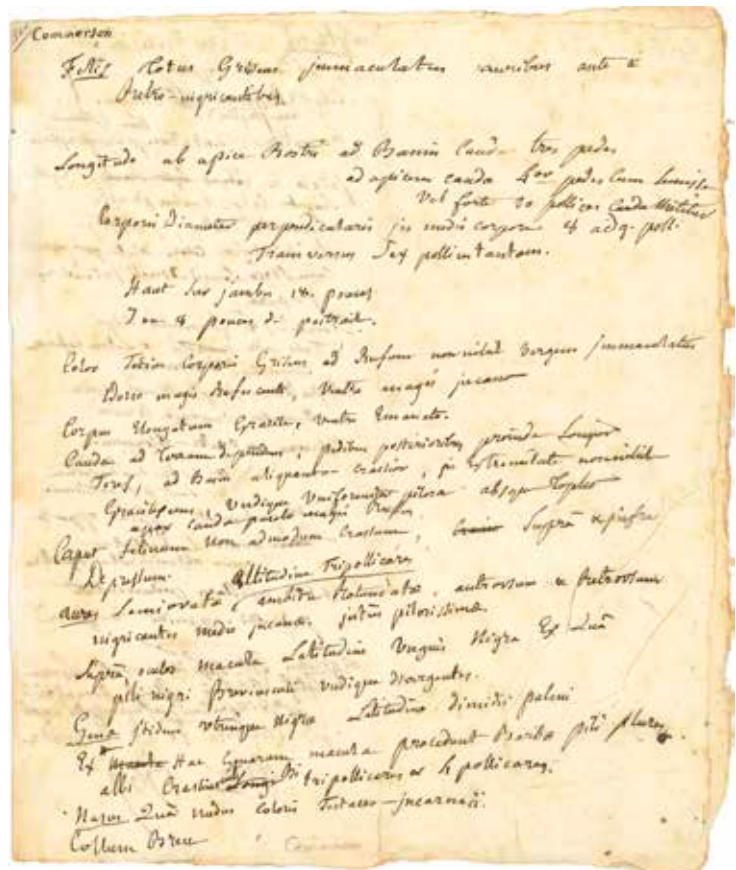 Commerson
Felis totus Griseus immaculatus auribus ante &
Retro-nigricantibus
Longitudo ab apice Rostri ad Basim Cauda tres pedes
ad apicem cauda 4or pedes cum semisse
Vel forte 20 pollices Cauda
Corporis Diameter perpendicularis in medio corpore 8 poll.
Transversus Sex pollic tantum.
Haut sur jambes 18. pouces
7 ou 8 pouces de poitrail.
Color Totius Corporis Griseus ad Rufum nonnihil Vergens immaculatus
Dorso magis Rufescente, Ventre magis incano
Corpus Elongatum Gracile, Ventre Emaciato.
Cauda ad terram dependens, pedibus posterioribus proinde Longior
Teres, ad Basim aliquantum crassior, in extremitate nonnihil
Undique Uniformiter pilosa absque
apex cauda paulo magis
Caput felinum non admodum Crassum, supra & infra
Depressum. altitudine Tripollicari
aures Semiovatæ, ambitu Rotundatæ, antrorsum & Retrorsum
nigricantes medio incanæ. intus pilosissimæ.
Supra oculos macula Latitudine Unguis Nigra Ex Quâ
pili nigri undique divergentes.
Genæ itidem utrinque Nigræ Latitudine dimidii palmi
Ex Hac Genarum macula procedunt Barbæ pili plures
albi Crassius tripollicares & 4 pollicares.
Nasus nudus coloris Testaceo-incarnati.
Collum Breve